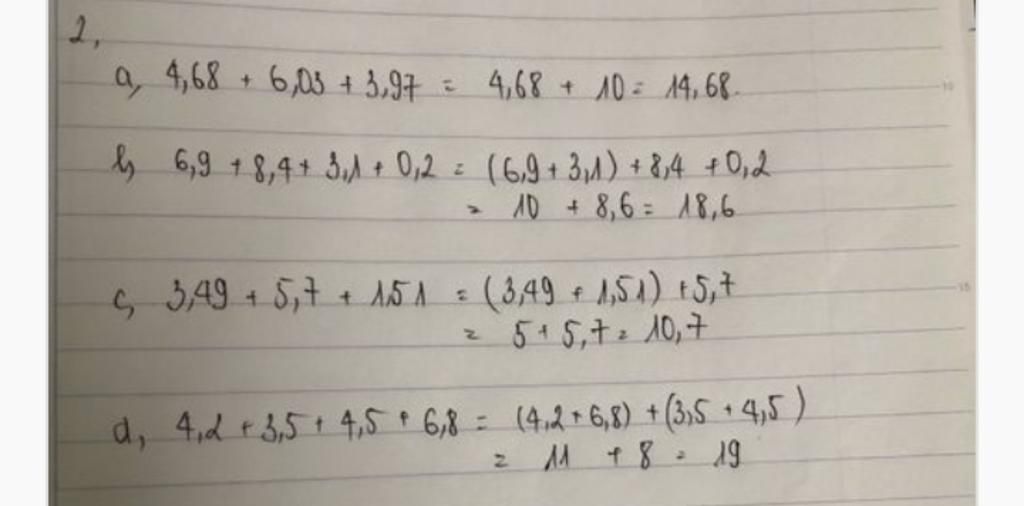 2,
a, 4,68 + 6,03 + 3,97 = 4,68 + 10 = 14,68.
b, 6,9 + 8,4 + 3,1 + 0,2 = (6,9 + 3,1) + 8,4 + 0,2
= 10 + 8,6 = 18,6
c, 3,49 + 5,7 + 1,51 = (3,49 + 1,51) + 5,7
= 5 + 5,7 = 10,7
d, 4,2 + 3,5 + 4,5 + 6,8 = (4,2 + 6,8) + (3,5 + 4,5)
= 11 + 8 = 19